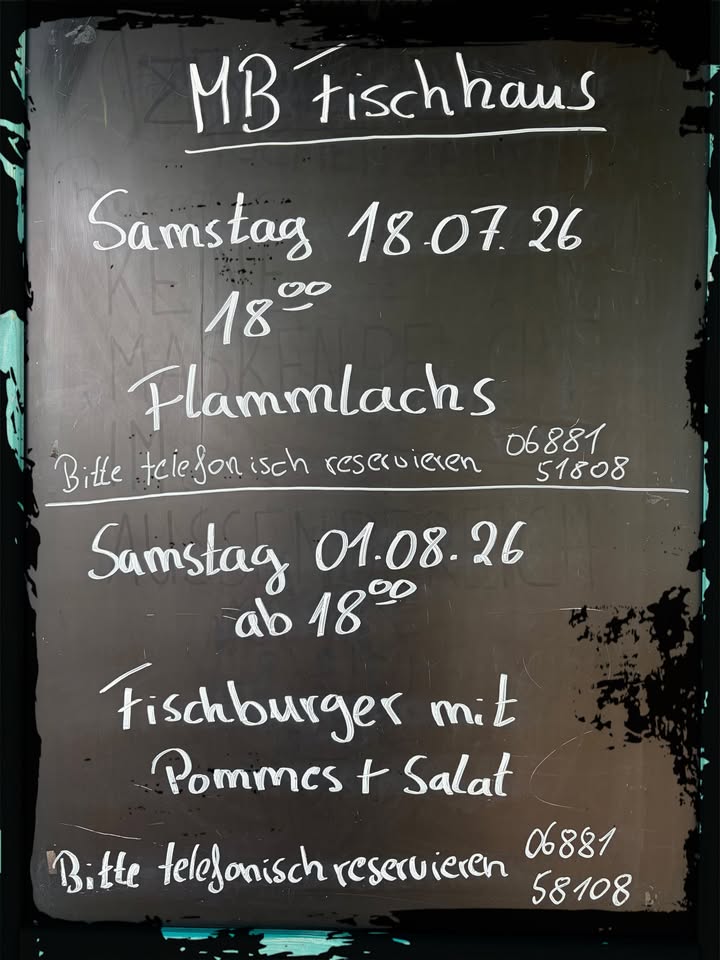 MB Fischhaus
Samstag 18.07.26
18⁰⁰
Flammlachs
Bitte telefonisch reservieren 06881
51808
Samstag 01.08.26
ab 18⁰⁰
Fischburger mit
Pommes + Salat
Bitte telefonisch reservieren 06881
58108